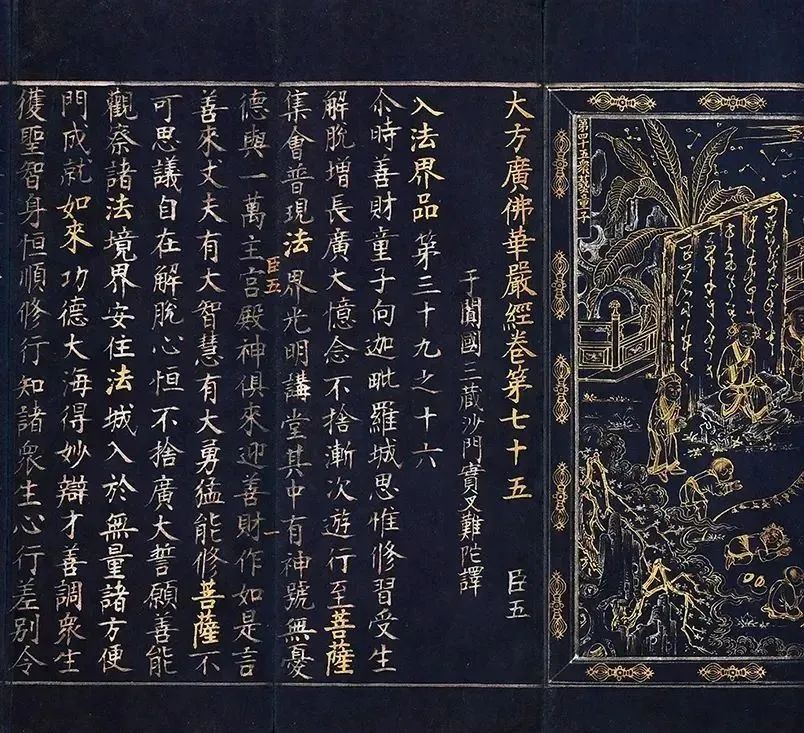 第四十五衆藝童子
大方廣佛華嚴經卷第七十五 臣五
于闐國三藏沙門實叉難陀譯
入法界品第三十九之十六
尒時善財童子向迦毗羅城思惟修習受生
解脫增長廣大憶念不捨漸次遊行至菩薩
集會普現法界光明講堂其中有神號無憂
臣五 一
德與一萬主宮殿神俱來迎善財作如是言
善來丈夫有大智慧有大勇猛能修菩薩不
可思議自在解脫心恒不捨廣大誓願善能
觀察諸法境界安住法城入於無量諸方便
門成就如來功德大海得妙辯才善調衆生
獲聖智身恒順修行知諸衆生心行差別令